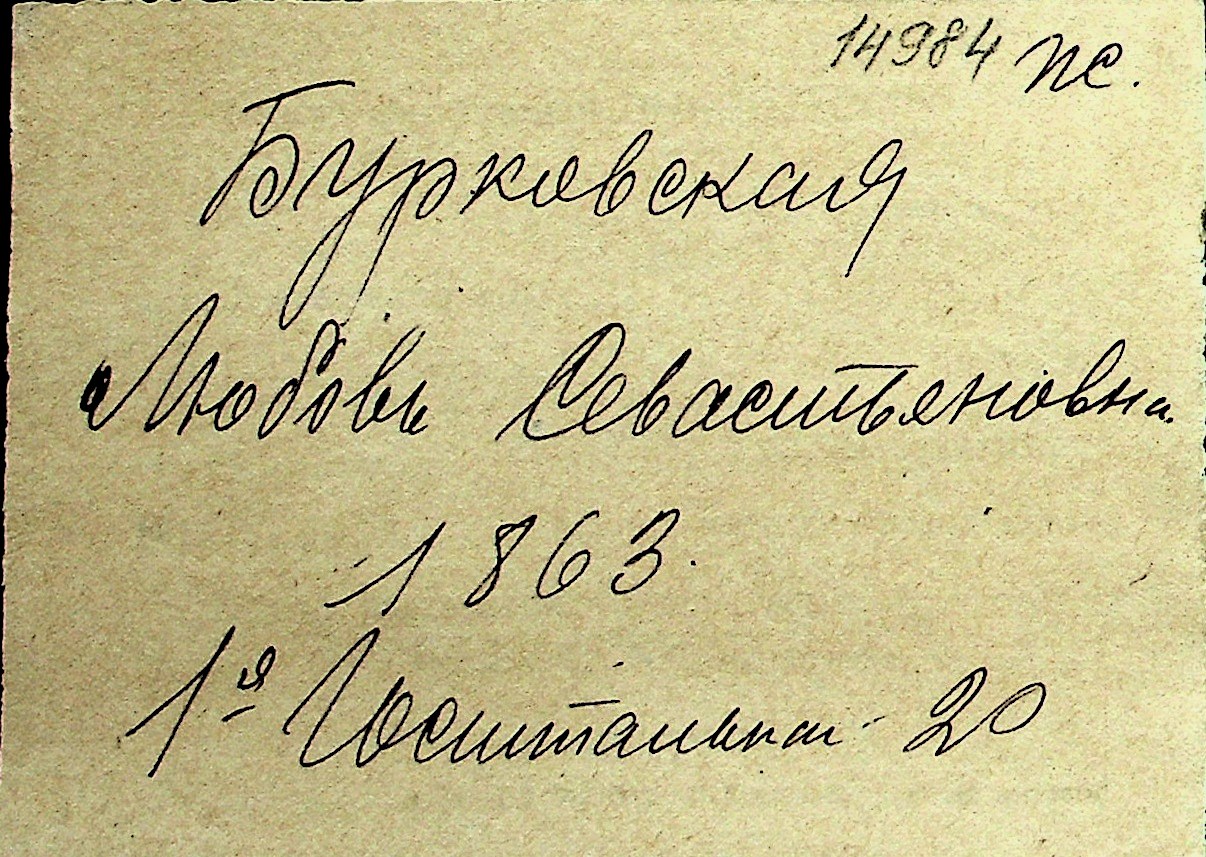 14984 пс.
Бурковская
Любовь Севастьяновна
1863.
1я Госпитальная 20